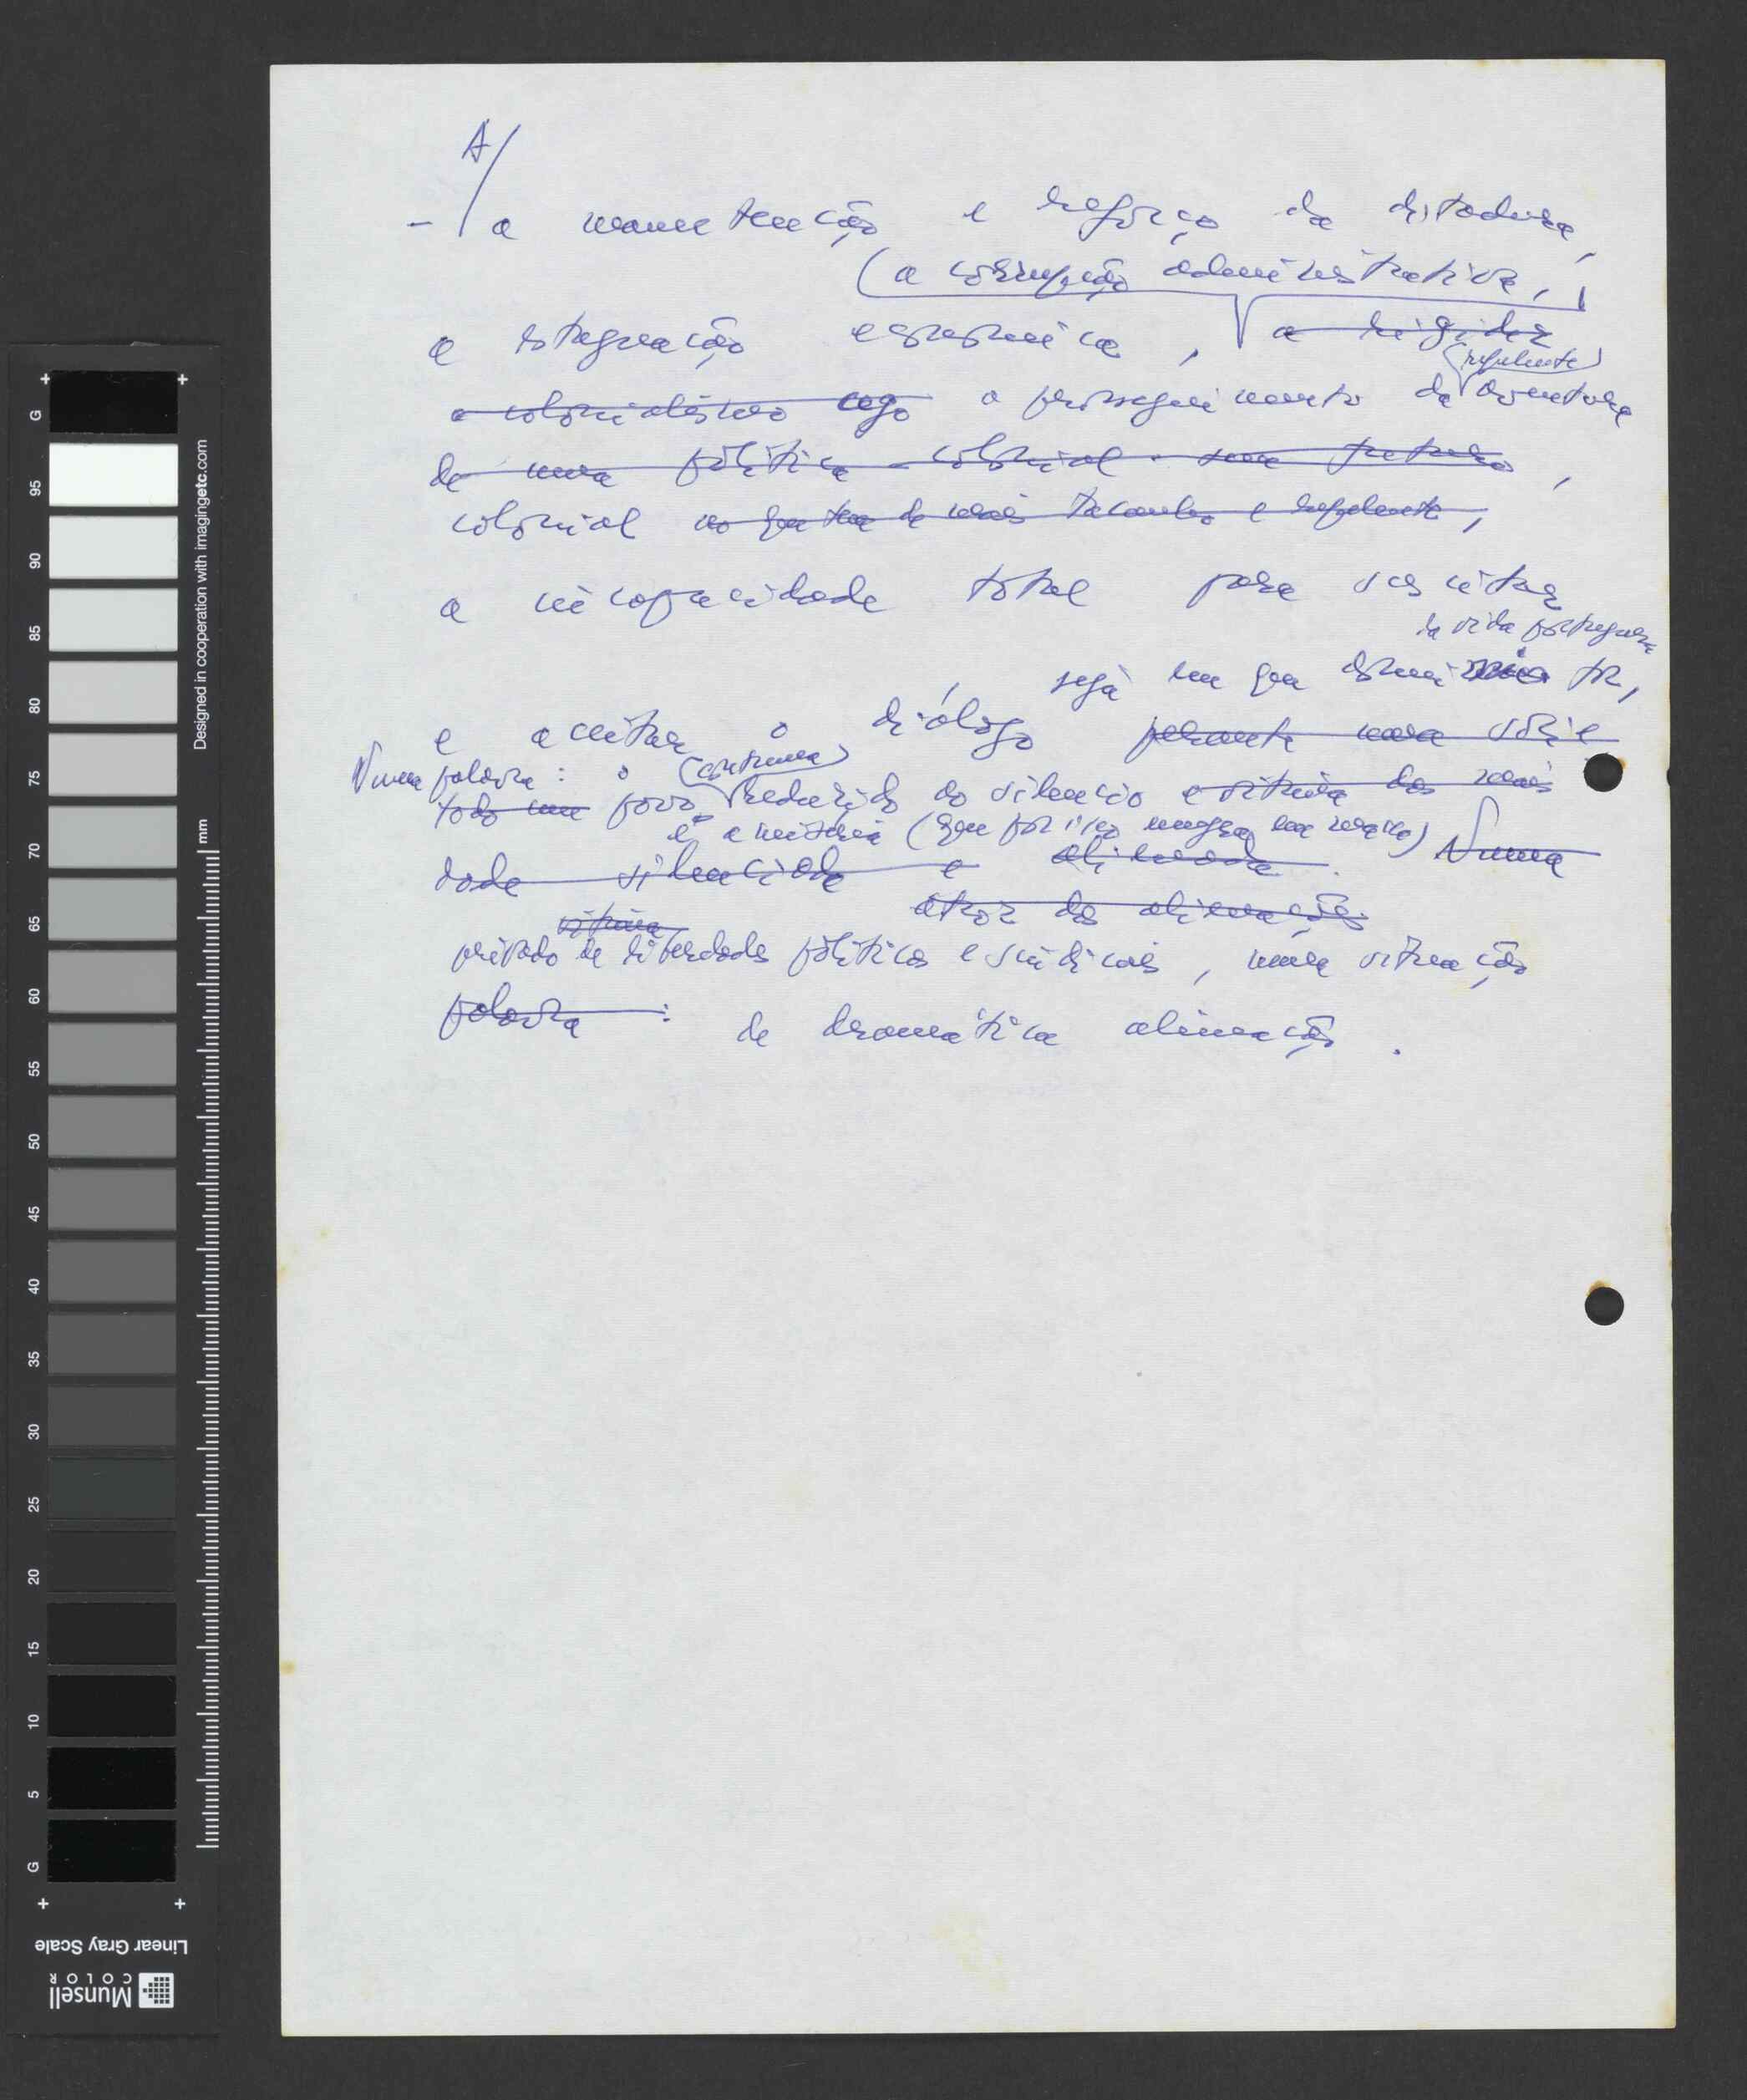 A/
- a manutenção e reforço da ditadura,
(a corrupção administrativa,
a estagnação económica, a rigidez
(repelente)
o colonialismo cego o prosseguimento da aventura
de uma política colonial sem futuro,
colonial no que tem de mais tacanho e repelente,
a incapacidade total para suscitar
da vida portuguesa
seja em que domínio for,
e aceitar o diálogo perante uma socie
Numa palavra: o (continua)
todo um povo reduzido ao silêncio e vítima das mais
e a miséria (que por isso emigra em massa) Numa
dade silenciada e alienada.
atroz das alienações.
vítima
privado de liberdades políticas e sindicais, numa situação
palavra:
de dramática alienação.
G 95 90 85 80 75 70 65 60 55 50 45 40 35 30 25 20 15 10 5 G
Designed in cooperation with imagingetc.com
mm
Linear Gray Scale
Munsell
COLOR